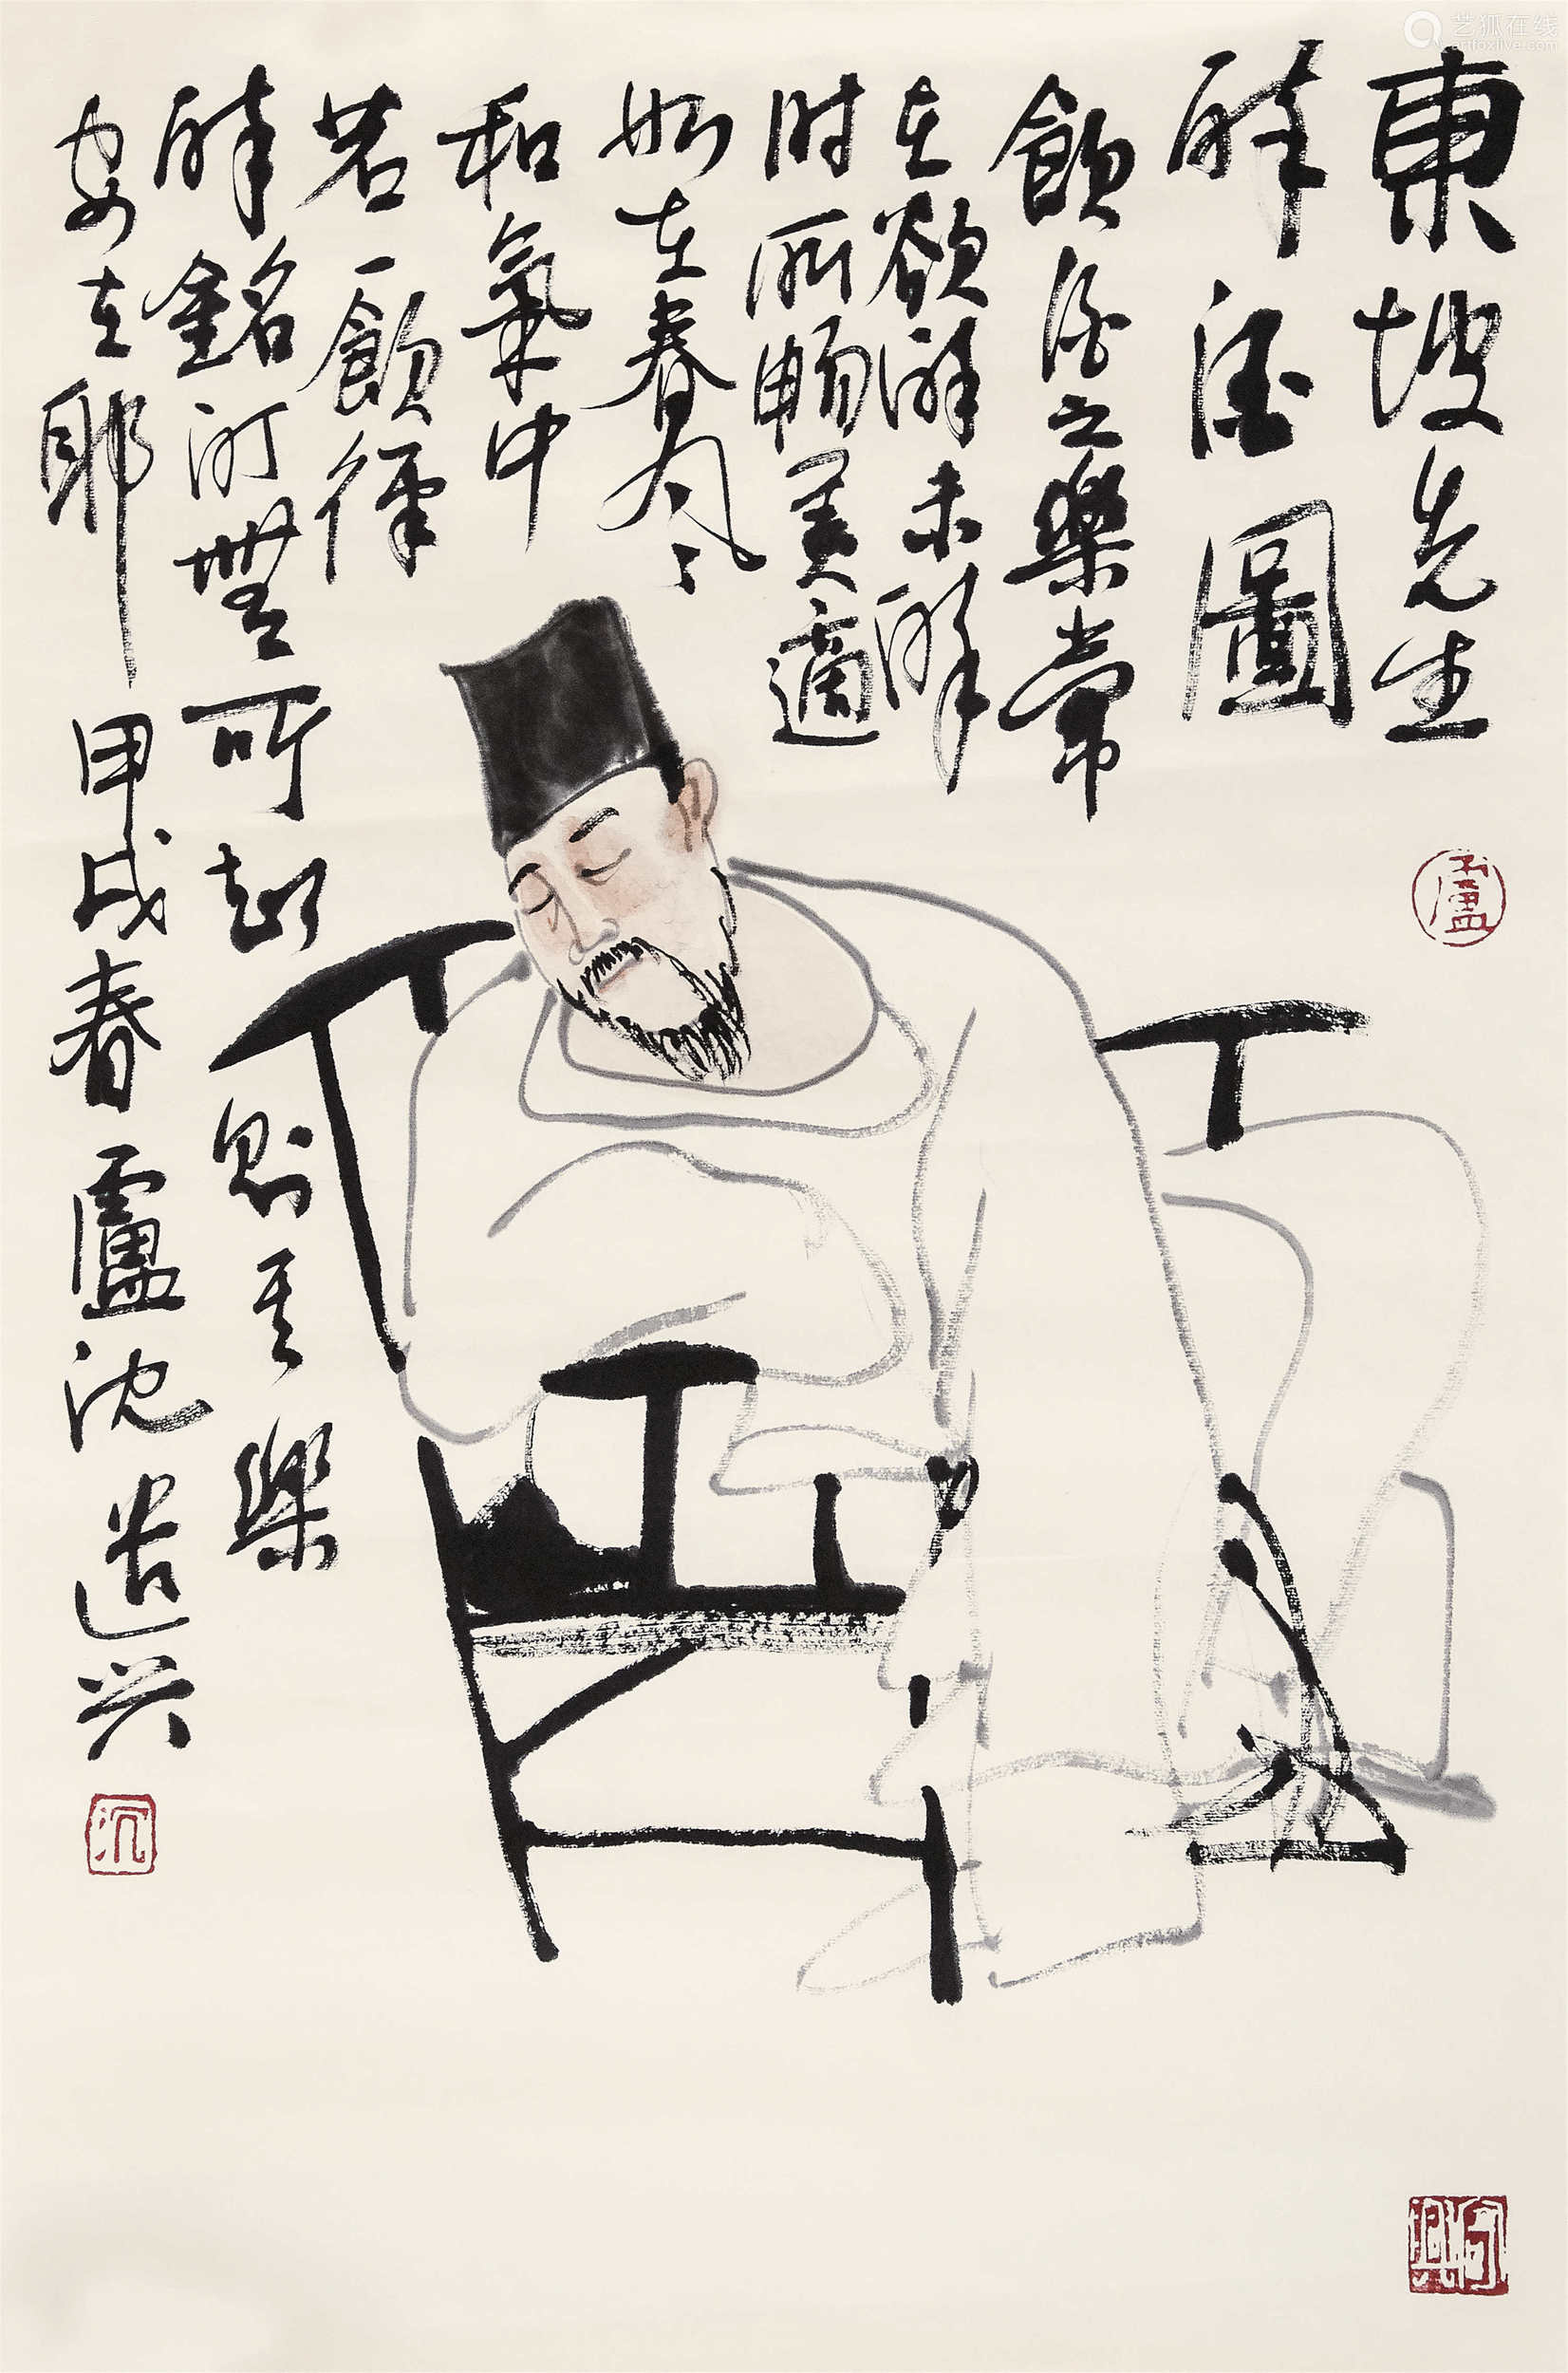 東坡先生
醉酒圖
飲酒之樂常
在欲醉未醉
时酣暢美適
如在春风
和氣中
若一飲徑
醉銘酊無所知則其樂
安在耶 甲戌春 盧沈遣兴
盧
沉
艺狐在线
artfoxlive.com